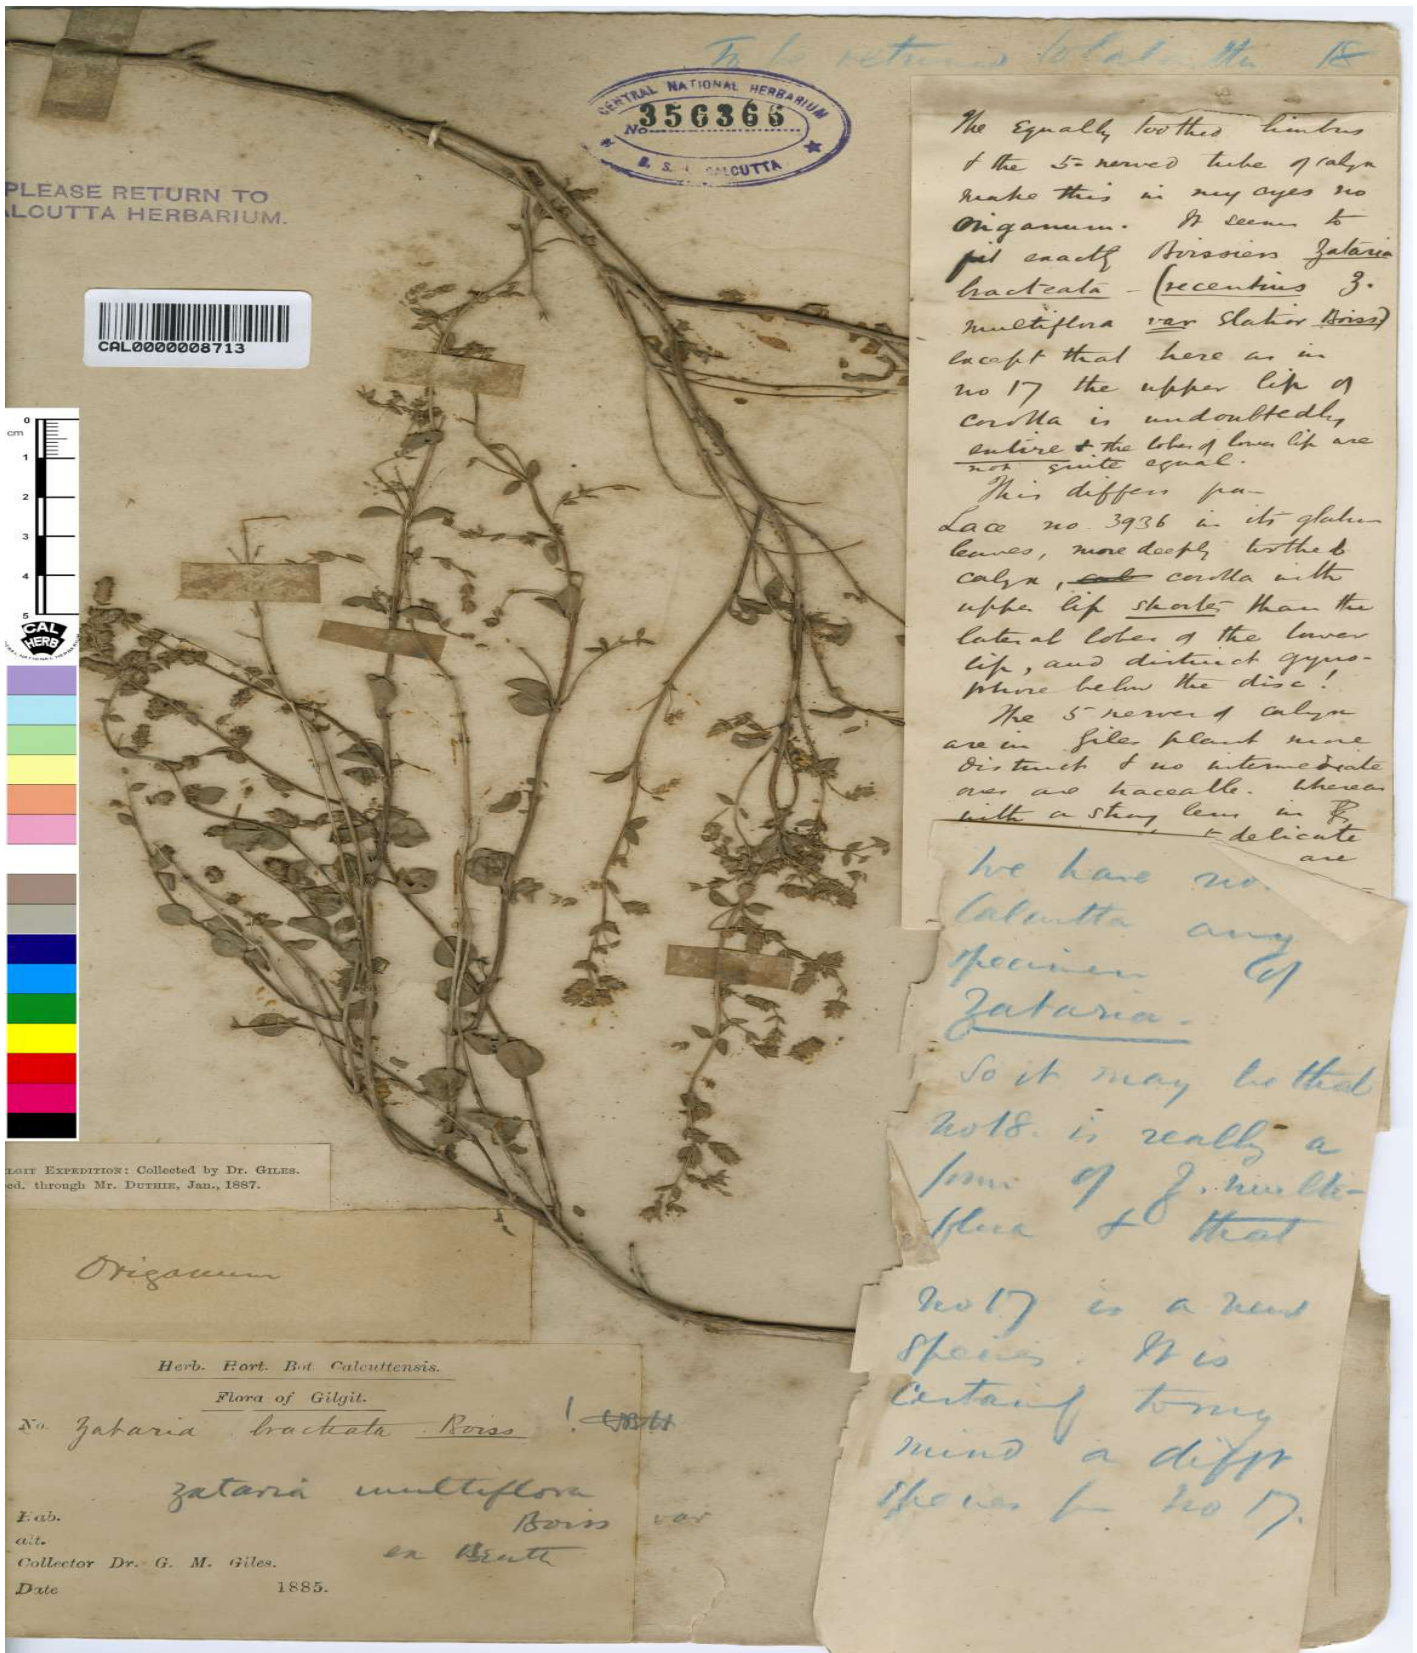 To be returned to Calcutta 18
CENTRAL NATIONAL HERBARIUM
No 356366
B. S. I. CALCUTTA
PLEASE RETURN TO
ALCUTTA HERBARIUM.
CAL0000008713
0
cm
1
2
3
4
5
CAL
HERB
The Equally toothed limbus
& the 5-nerved tube of calyx
make this in my eyes no
Origanum. It seems to
fit exactly Boissiers Zataria
bracteata - (recentius Z.
multiflora var Elatior Boiss)
except that here as in
no 17 the upper lip of
corolla is undoubtedly
entire & the lobes of lower lip are
not quite equal.
This differs from
Lace no 3936 in its glabrous
leaves, more deeply toothed
calyx, corolla with
upper lip shorter than the
lateral lobes of the lower
lip, and distinct gyno-
phore below the disc!
The 5 nerves of calyx
are in Giles plant more
distinct & no intermediate
ones are traceable. Whereas
with a strong lens in
& delicate
are
We have no
Calcutta any
specimen of
Zataria.
So it may be that
no 18. is really a
form of Z. multi-
flora & that
no 17 is a new
species. It is
certainly to my
mind a difft
species fm no 17.
LGIT EXPEDITION: Collected by Dr. GILES.
ed. through Mr. DUTHIE, Jan., 1887.
Origanum
Herb. Hort. Bot Calcuttensis.
Flora of Gilgit.
No. Zataria bracteata Boiss !
Zataria multiflora
Hab. Boiss var
alt. ex Benth
Collector Dr. G. M. Giles.
Date 1885.